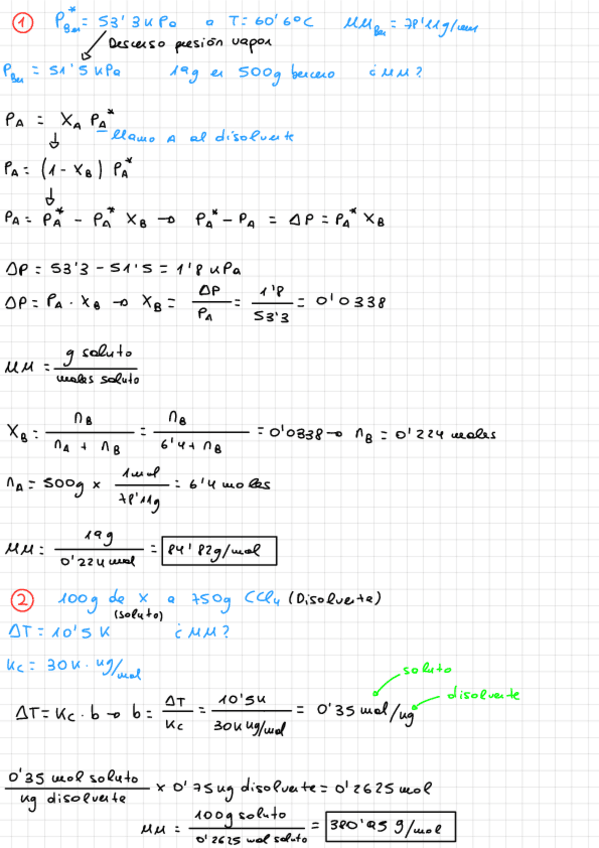 ① P*Ben = 53'3 kPa a T = 60'6ºC MMBen = 78'11g/mol
Descenso presión vapor
PBen = 51'5 kPa 19g en 500g benceno ¿MM?
PA = XA PA*
llamo A al disolvente
PA = (1 - XB) PA*
PA = PA* - PA* XB → PA* - PA = ΔP = PA* XB
ΔP = 53'3 - 51'5 = 1'8 kPa
ΔP = PA · XB → XB = ΔP/PA = 1'8/53'3 = 0'0338
MM = g soluto/moles soluto
XB = nB/(nA + nB) = nB/(6'4 + nB) = 0'0338 → nB = 0'224 moles
nA = 500g × 1mol/78'11g = 6'4 moles
MM: 19g/0'224 mol = 84'82g/mol
② 100g de X a 750g CCl4 (Disolvente)
(soluto)
ΔT = 10'5 K ¿MM?
Kc = 30K·kg/mol
soluto
disolvente
ΔT = Kc · b → b = ΔT/Kc = 10'5K/30K kg/mol = 0'35 mol/kg
0'35 mol soluto/kg disolvente × 0'75 kg disolvente = 0'2625 mol
MM = 100g soluto/0'2625 mol soluto = 380'95 g/mol